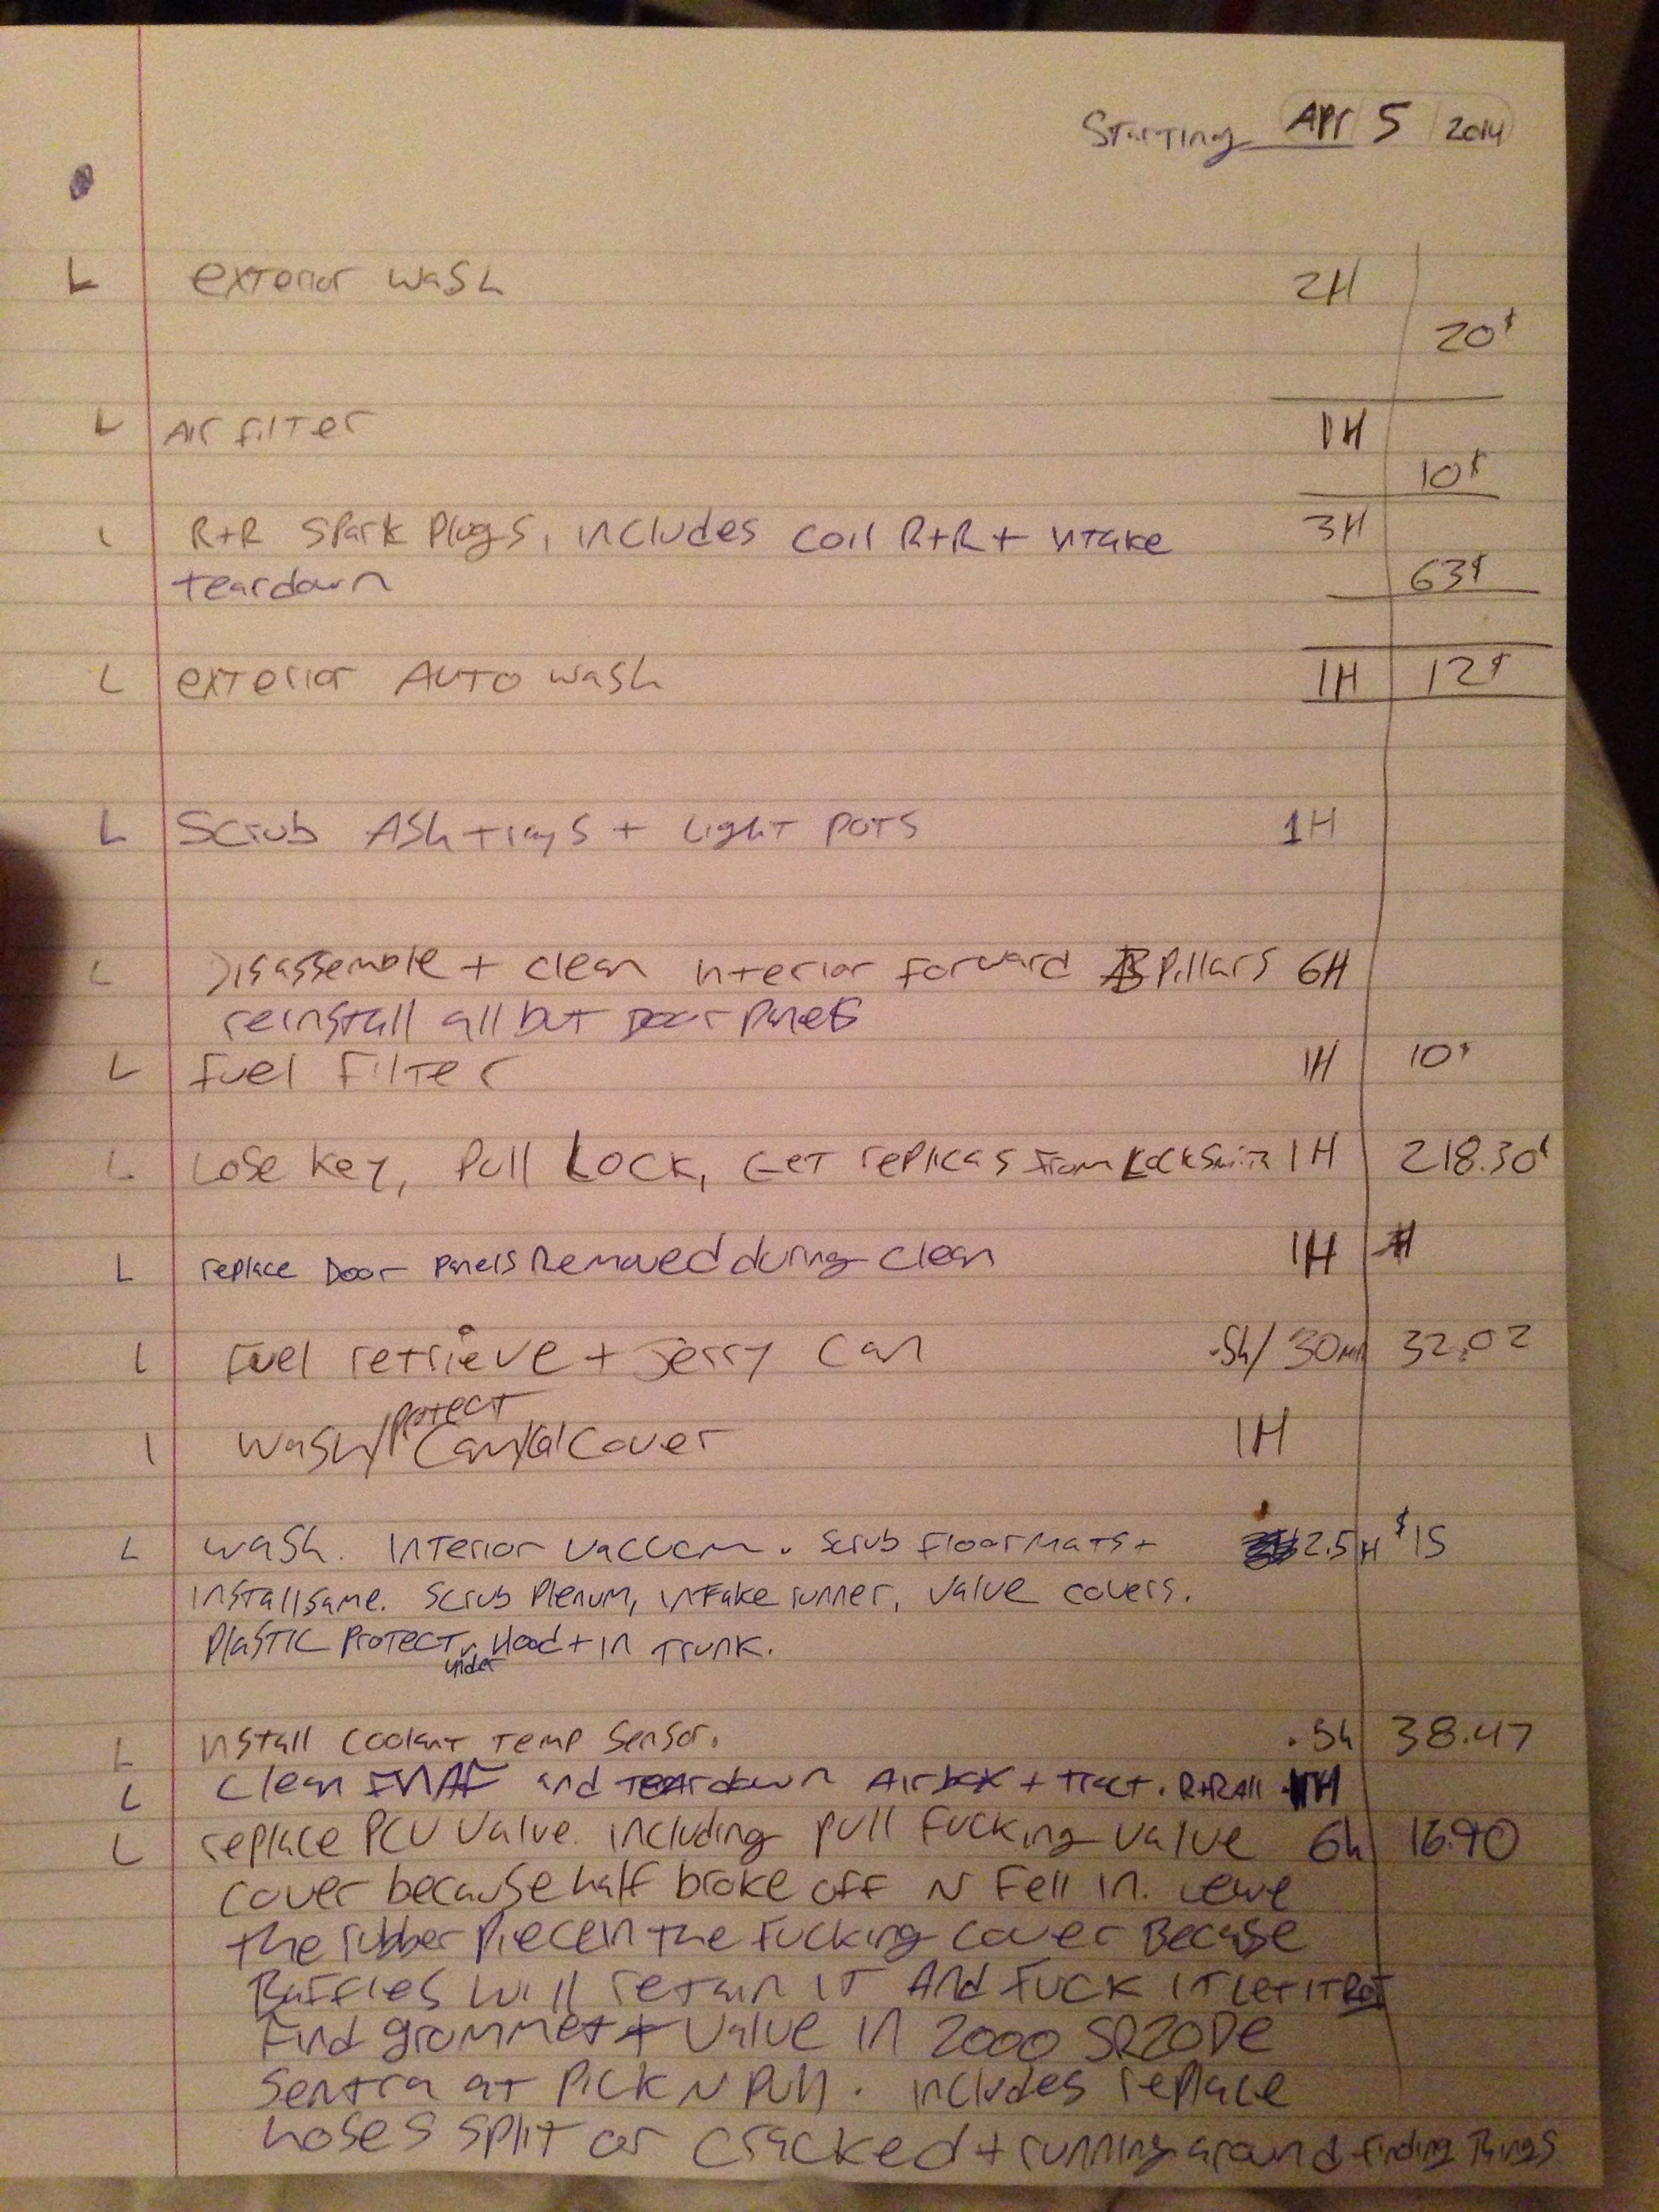 Starting Apr 5 2014
L exterior wash 2H
20$
L Air filter 1H
10$
L R+R Spark Plugs, includes coil R+R + intake 3H
teardown 63$
L exterior AUTO wash 1H 12$
L Scrub Ashtrays + Light POTS 1H
L Disassemble + clean interior forward B Pillars 6H
reinstall all but Door Panels
L Fuel Filter 1H 10$
L Lose key, Pull Lock, Get replicas from Locksmith 1H 218.30$
L replace Door Panels Removed during clean 1H
L Fuel retrieve + Jerry Can .5h/30min 32.02
Protect
L wash/ Cover 1H
L wash. Interior vaccum. Scrub floormats + 2.5H $15
install same. Scrub Plenum, intake runner, valve covers.
Plastic Protect Hood + in Trunk.
under
L install coolant temp sensor. .5h 38.47
L clean MAF and teardown Airbox + tract. R+R All 1H
L replace PCV valve. including pull fucking valve 6h 16.90
cover because half broke off N Fell in. Leave
the rubber piece in the fucking cover Because
Baffles will retain it And Fuck it let it Rot
Find grommet + valve in 2000 SR20DE
Sentra at Pick N Pull. includes replace
hoses split or cracked + running around finding things